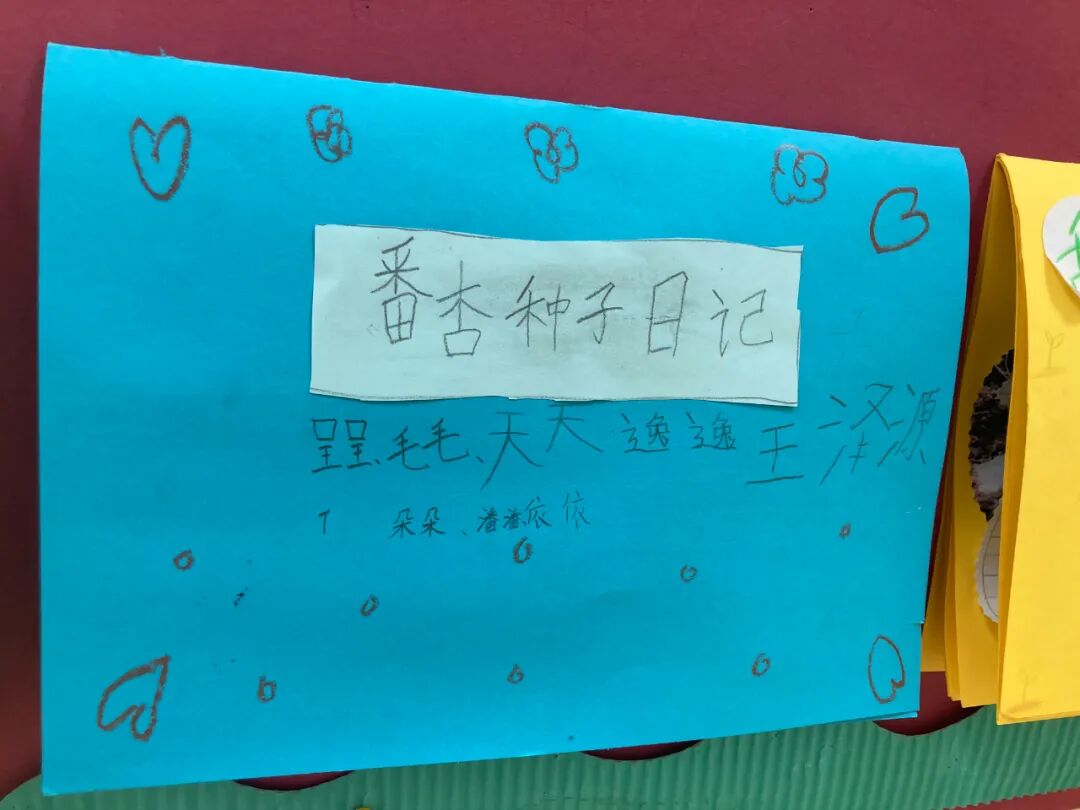 番杏种子日记
呈呈、毛毛、天天 逸逸 王泽源
朵朵、潘潘依依